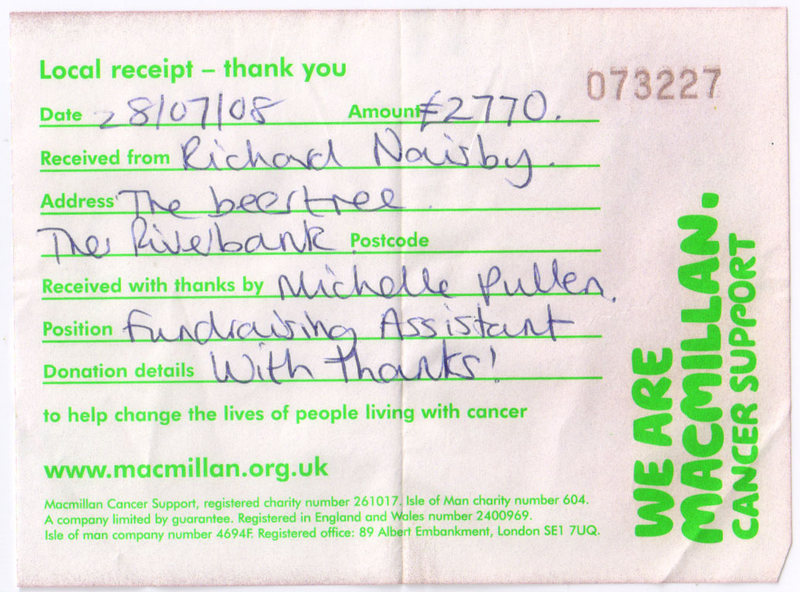 Local receipt – thank you
073227
Date 28/07/08 Amount £2770.
Received from Richard Naisby.
Address The beertree.
The Riverbank Postcode
Received with thanks by Michelle Pullen.
Position Fundraising Assistant
Donation details With Thanks!
to help change the lives of people living with cancer
www.macmillan.org.uk
Macmillan Cancer Support, registered charity number 261017. Isle of Man charity number 604.
A company limited by guarantee. Registered in England and Wales number 2400969.
Isle of man company number 4694F. Registered office: 89 Albert Embankment, London SE1 7UQ.
WE ARE
MACMILLAN.
CANCER SUPPORT